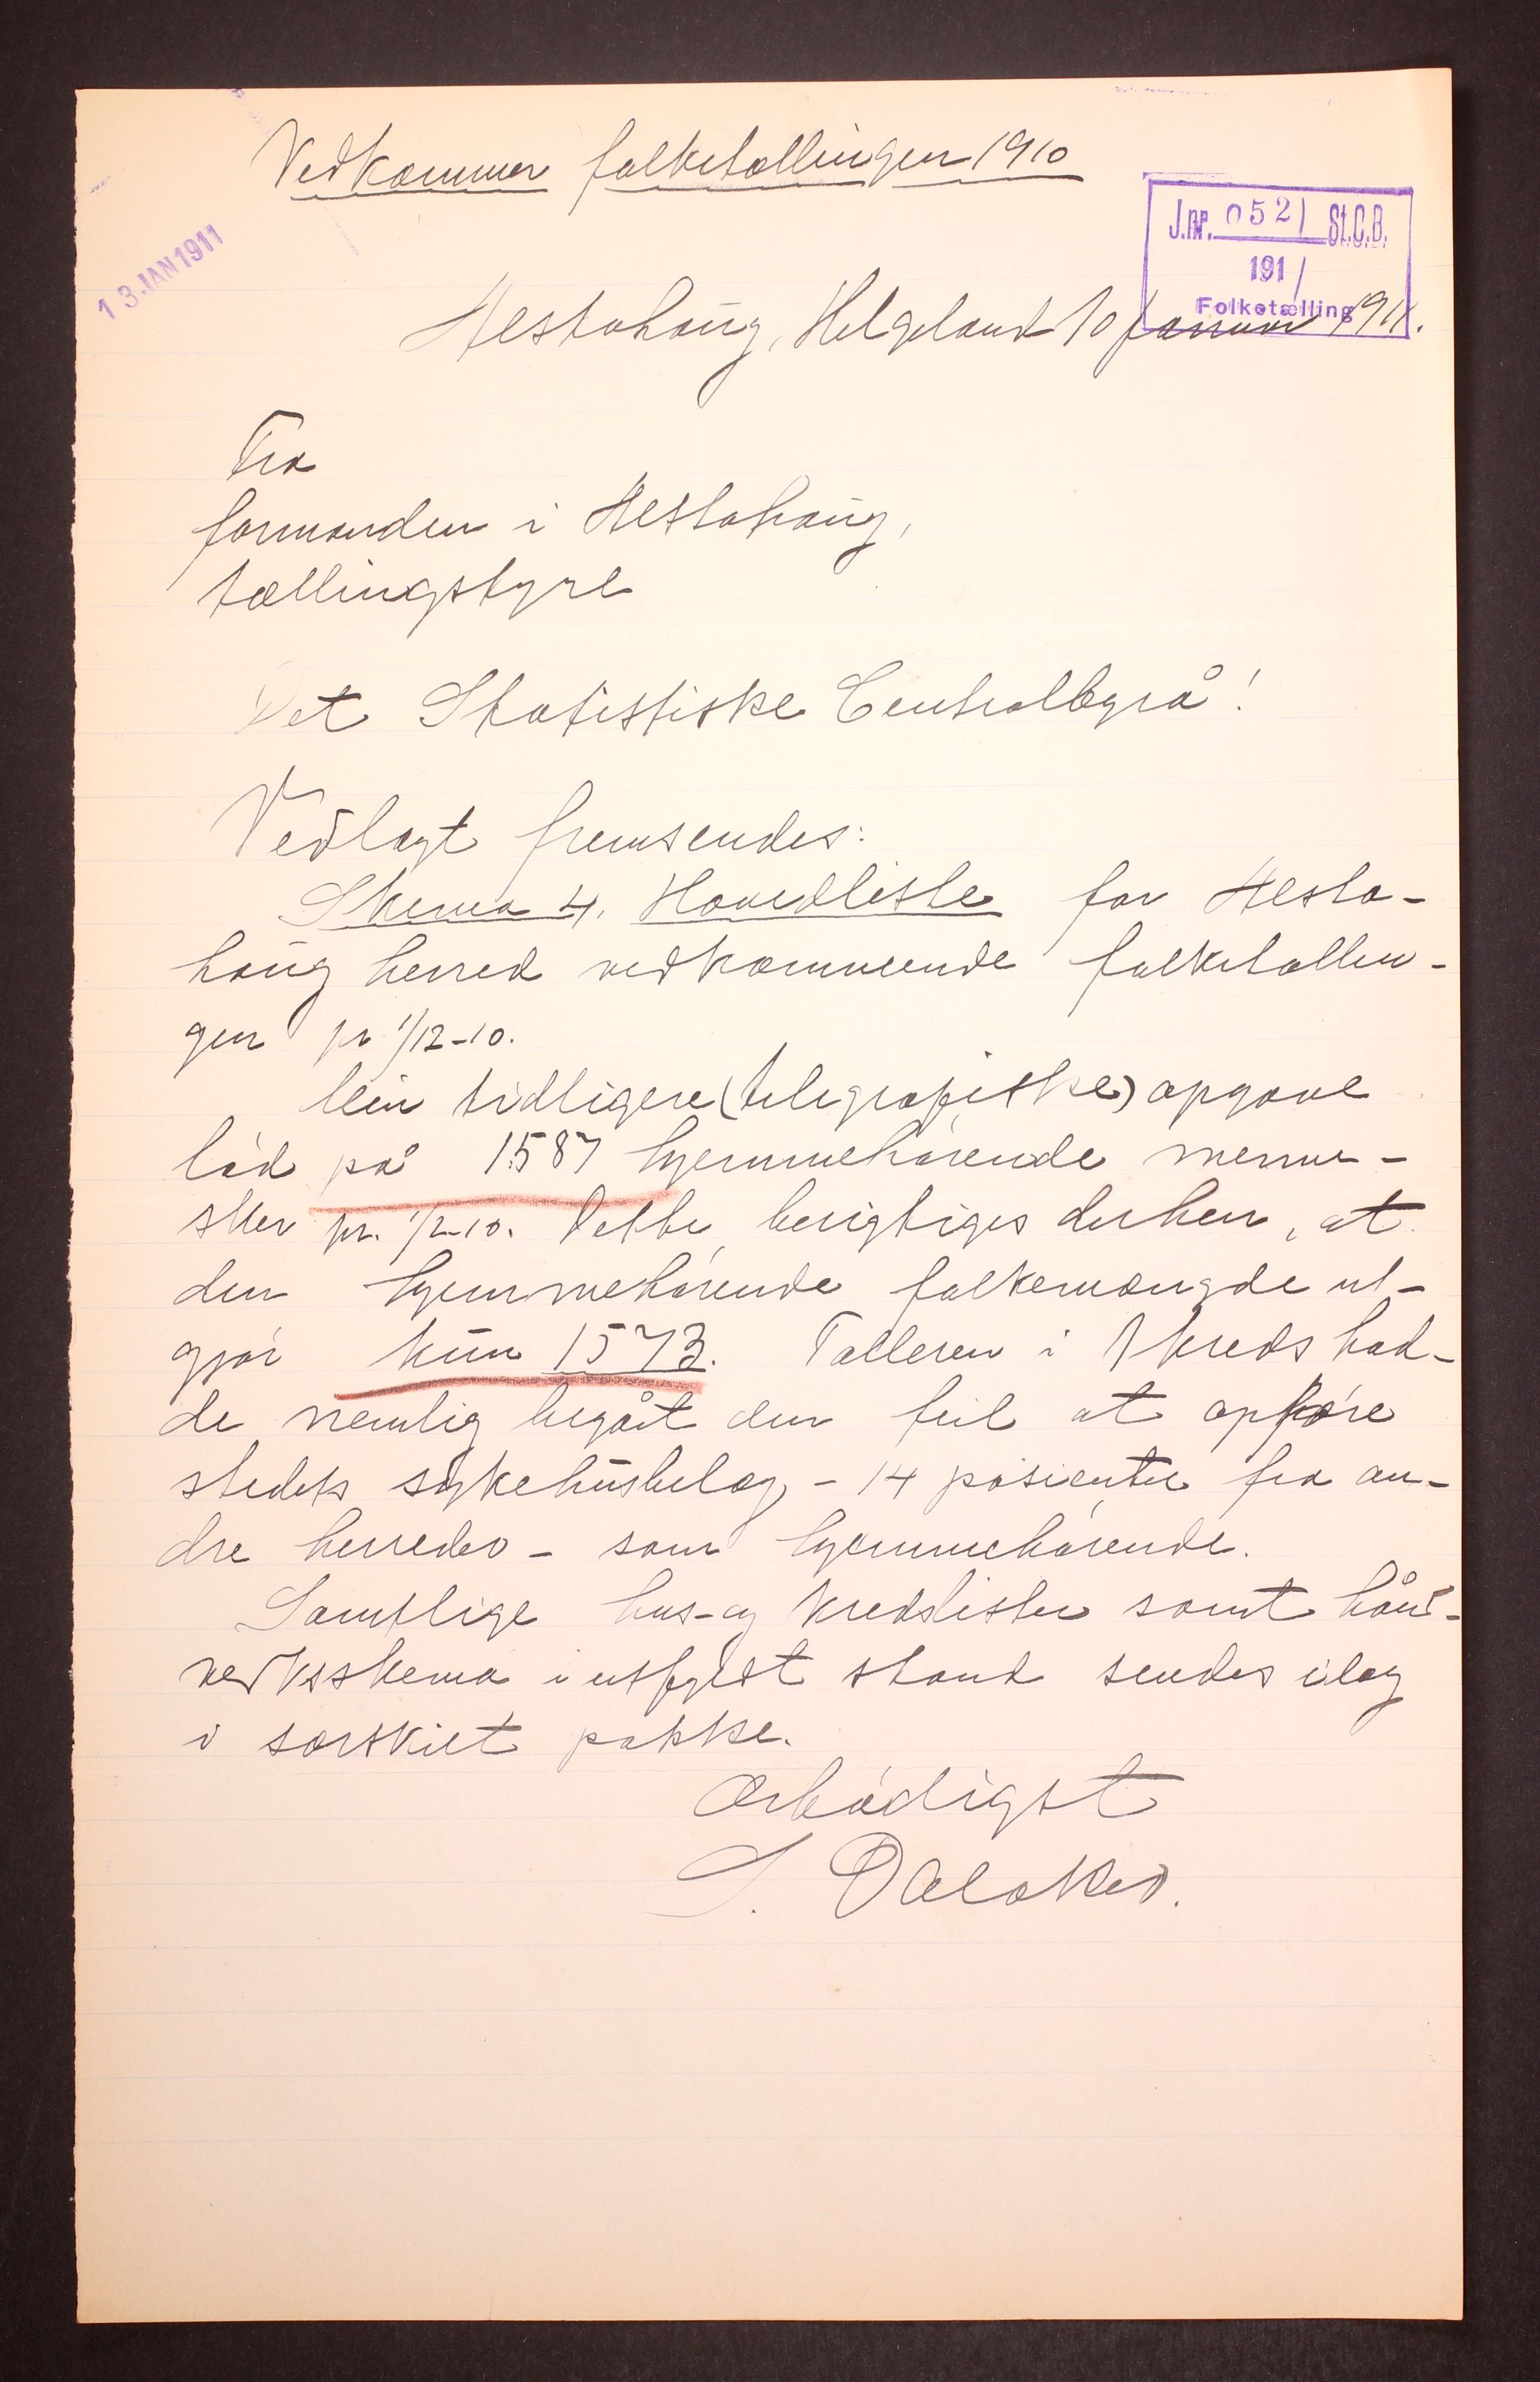 Vedkommer folketællingen 1910
13 JAN 1911
J.nr. 0521 St.C.B.
1911
Folketælling
Alstahaug, Helgeland 10 januar 1911.
Fra
formanden i Alstahaug,
tællingstyre
Det Statistiske Centralbyrå!
Vedlagt fremsendes:
Skema 4. Hovedliste for Alsta-
haug herred vedkommende folketællin-
gen pr 1/12-10.
Min tidligere (telegrafiske) opgave
lød på 1587 hjemmehørende menne-
sker pr. 1/12-10. Dette berigtiges derhen, at
den hjemmehørende folkemængde ut-
gjør kun 1573. Tælleren i 1 kreds had-
de nemlig begåt den feil at opføre
stedets sykehusbelæg - 14 pasienter fra an-
dre herreder - som hjemmehørende.
Samtlige hus- og kredslister samt hånd-
verksskema i utfyldt stand sendes idag
i særskilt pakke.
Ærbødigst
S. Dalaker.